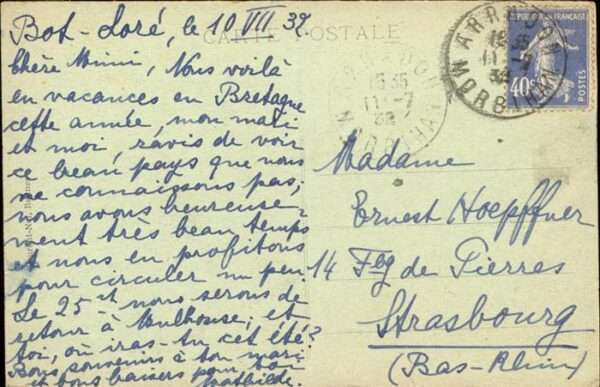 Bot-Loré, le 10 VII 32.
CARTE POSTALE
Chère Mimi, Nous voilà
en vacances en Bretagne
cette année, mon mari
et moi, ravis de voir
ce beau pays que nous
ne connaissons pas;
nous avons heureuse-
ment très beau temps
et nous en profitons
pour circuler un peu.
Le 25 ct nous serons de
retour à Mulhouse; et
toi, où iras-tu cet été?
Bons souvenirs à ton mari
et bons baisers pour toi
Mathilde.
REPUBLIQUE FRANÇAISE
40c
POSTES
ARRADON
15 35
11-7
32
MORBIHAN
ARRADON
15 35
11-7
32
MORBIHAN
Madame
Ernest Hoepffner
14 Fbg de Pierres
Strasbourg
(Bas-Rhin)